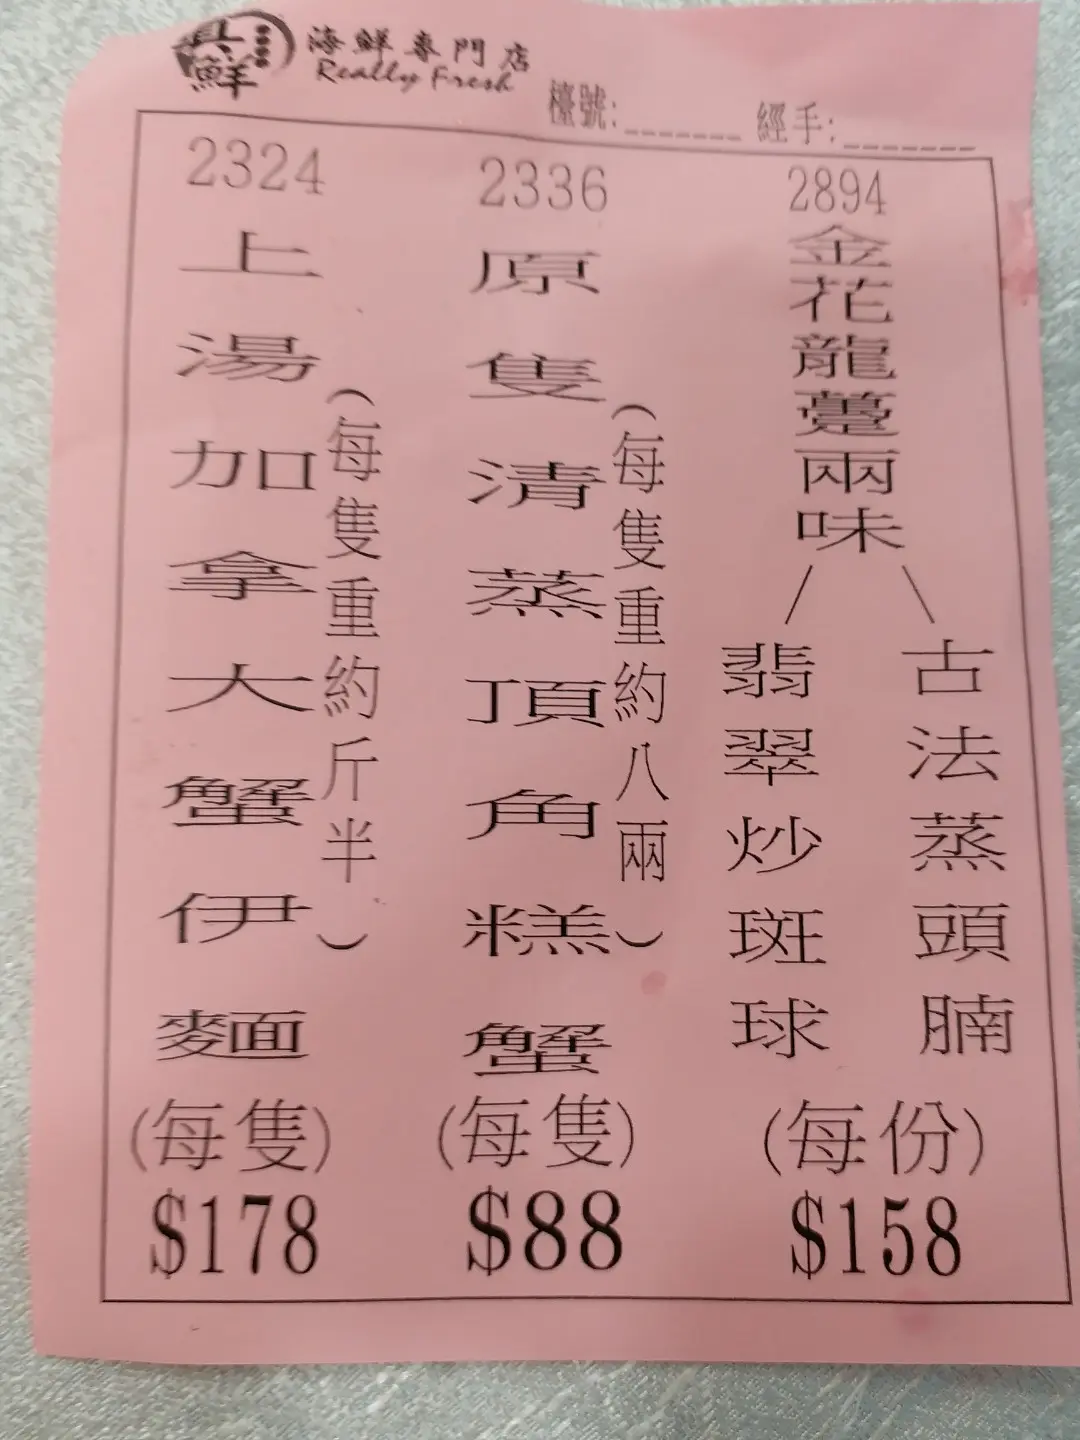 真鮮
海鮮專門店
Really Fresh
檯號:_______ 經手:_______
2894
金花龍躉兩味
古法蒸頭腩
翡翠炒斑球
(每份)
$158
2336
原隻清蒸頂角糕蟹
(每隻重約八兩)
(每隻)
$88
2324
上湯加拿大蟹伊麵
(每隻重約斤半)
(每隻)
$178